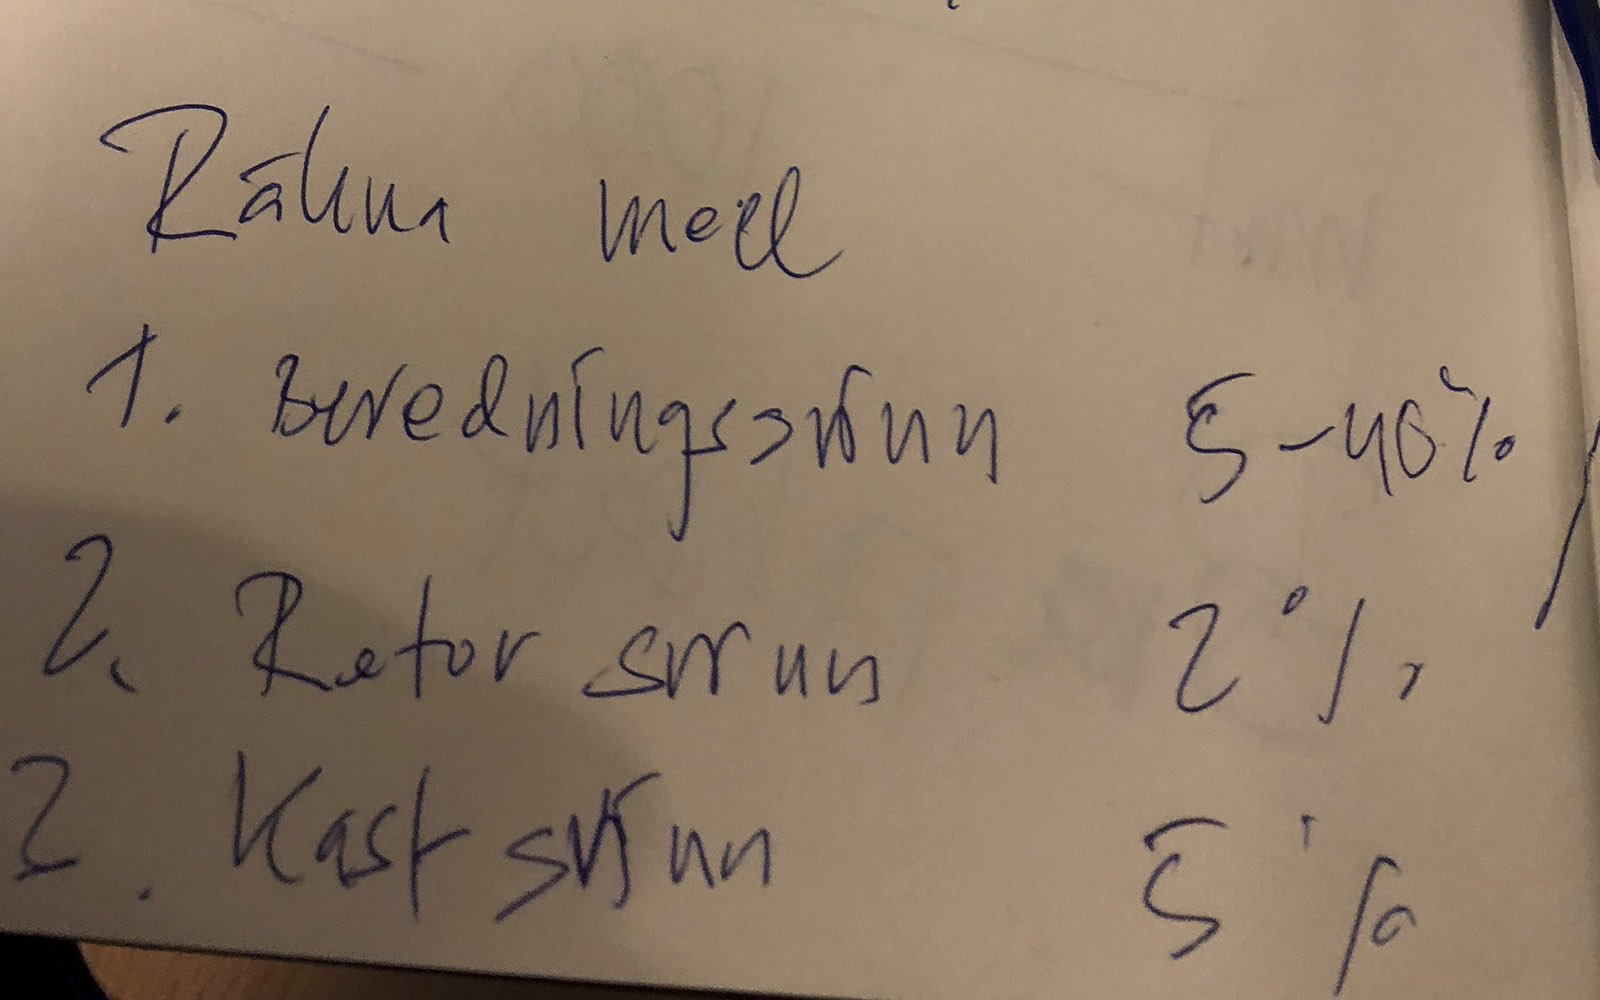 Räkna med
1. Beredningssvinn 5-40%
2. Retorsvinn 2%
3. Kastsvinn 5%